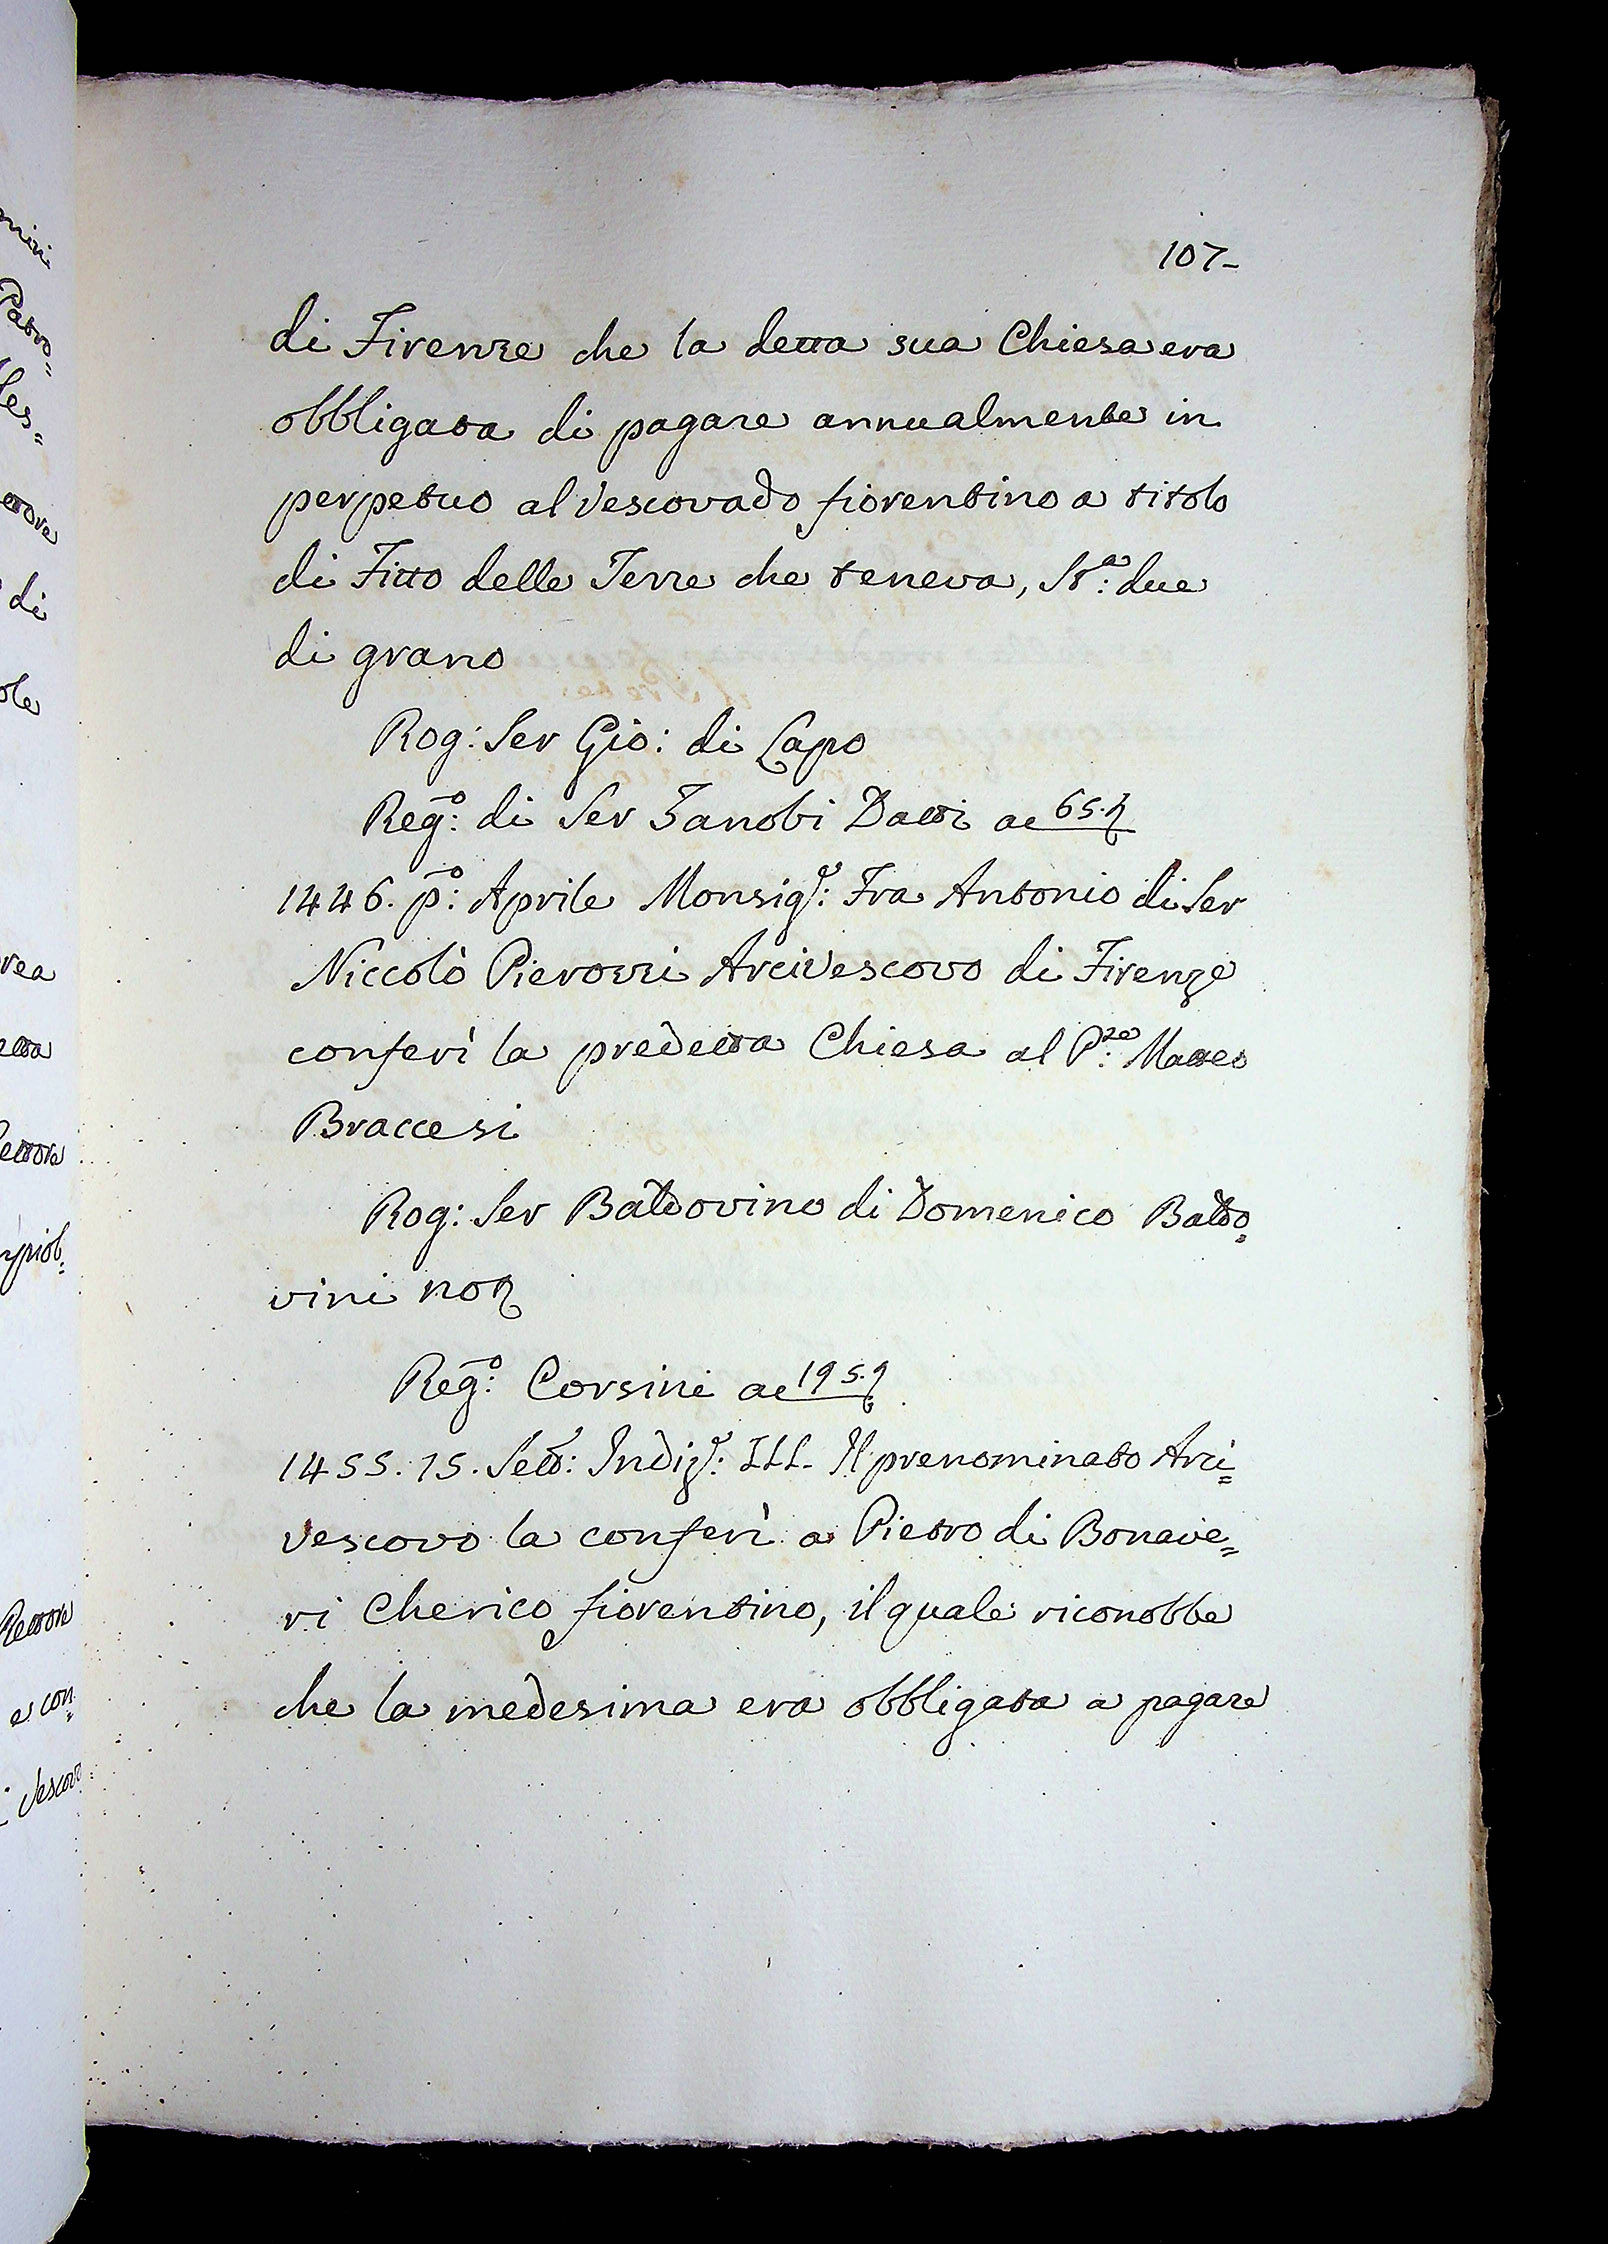 107-
di Firenze che la detta sua Chiesa era
obbligata di pagare annualmente in
perpetuo al Vescovado fiorentino a titolo
di Fitto delle Terre che teneva, St.ª: due
di grano
Rog: Ser Gio: di Lapo
Reg.º: di Ser Zanobi Datti ac 65.
1446. p.º: Aprile Monsig.e: Fra Antonio di Ser
Niccolò Pierozzi Arcivescovo di Firenze
conferì la predetta Chiesa al P.re: Matteo
Braccesi
Rog: Ser Baldovino di Domenico Baldo=
vini
Reg.º: Corsini ac 195.
1455. 15. Sett: Indiz.e: III. Il prenominato Arci=
vescovo la conferì a Pietro di Bonave=
ri Cherico fiorentino, il quale riconobbe
che la medesima era obbligata a pagare
di
Rettore
e con=
Vescov